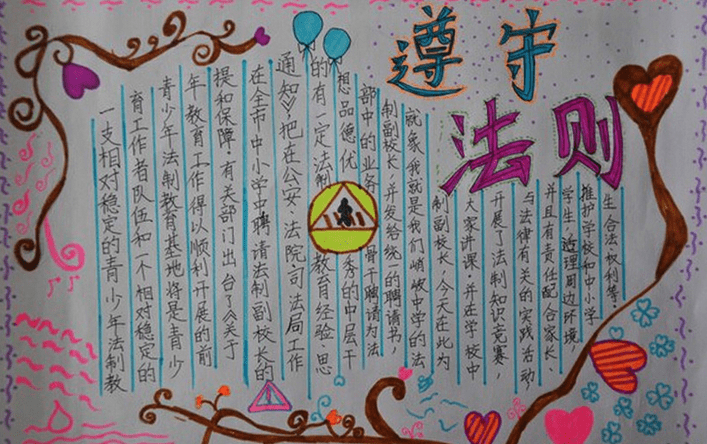 遵守
法则
一支相对稳定的青少年法制教
育工作者队伍和一个相对稳定的
青少年法制教育基地将是青少
年教育工作得以顺利开展的前
提和保障,有关部门出台了《关于
在全市中小学中聘请法制副校长的
通知》,把在公安、法院司法局工作
的有一定法制教育经验、思
想品德优秀的中层干
部中的业务骨干聘请为法
制副校长,并发给统一的聘请书,
就象我就是我们峭岐中学的法
制副校长,今天在此为
大家讲课,并在学校中
开展了法制知识竞赛,
与法律有关的实践活动
并且有责任配合家长、
学生,理周边环境,
护学校和中小学
生合法权利等、